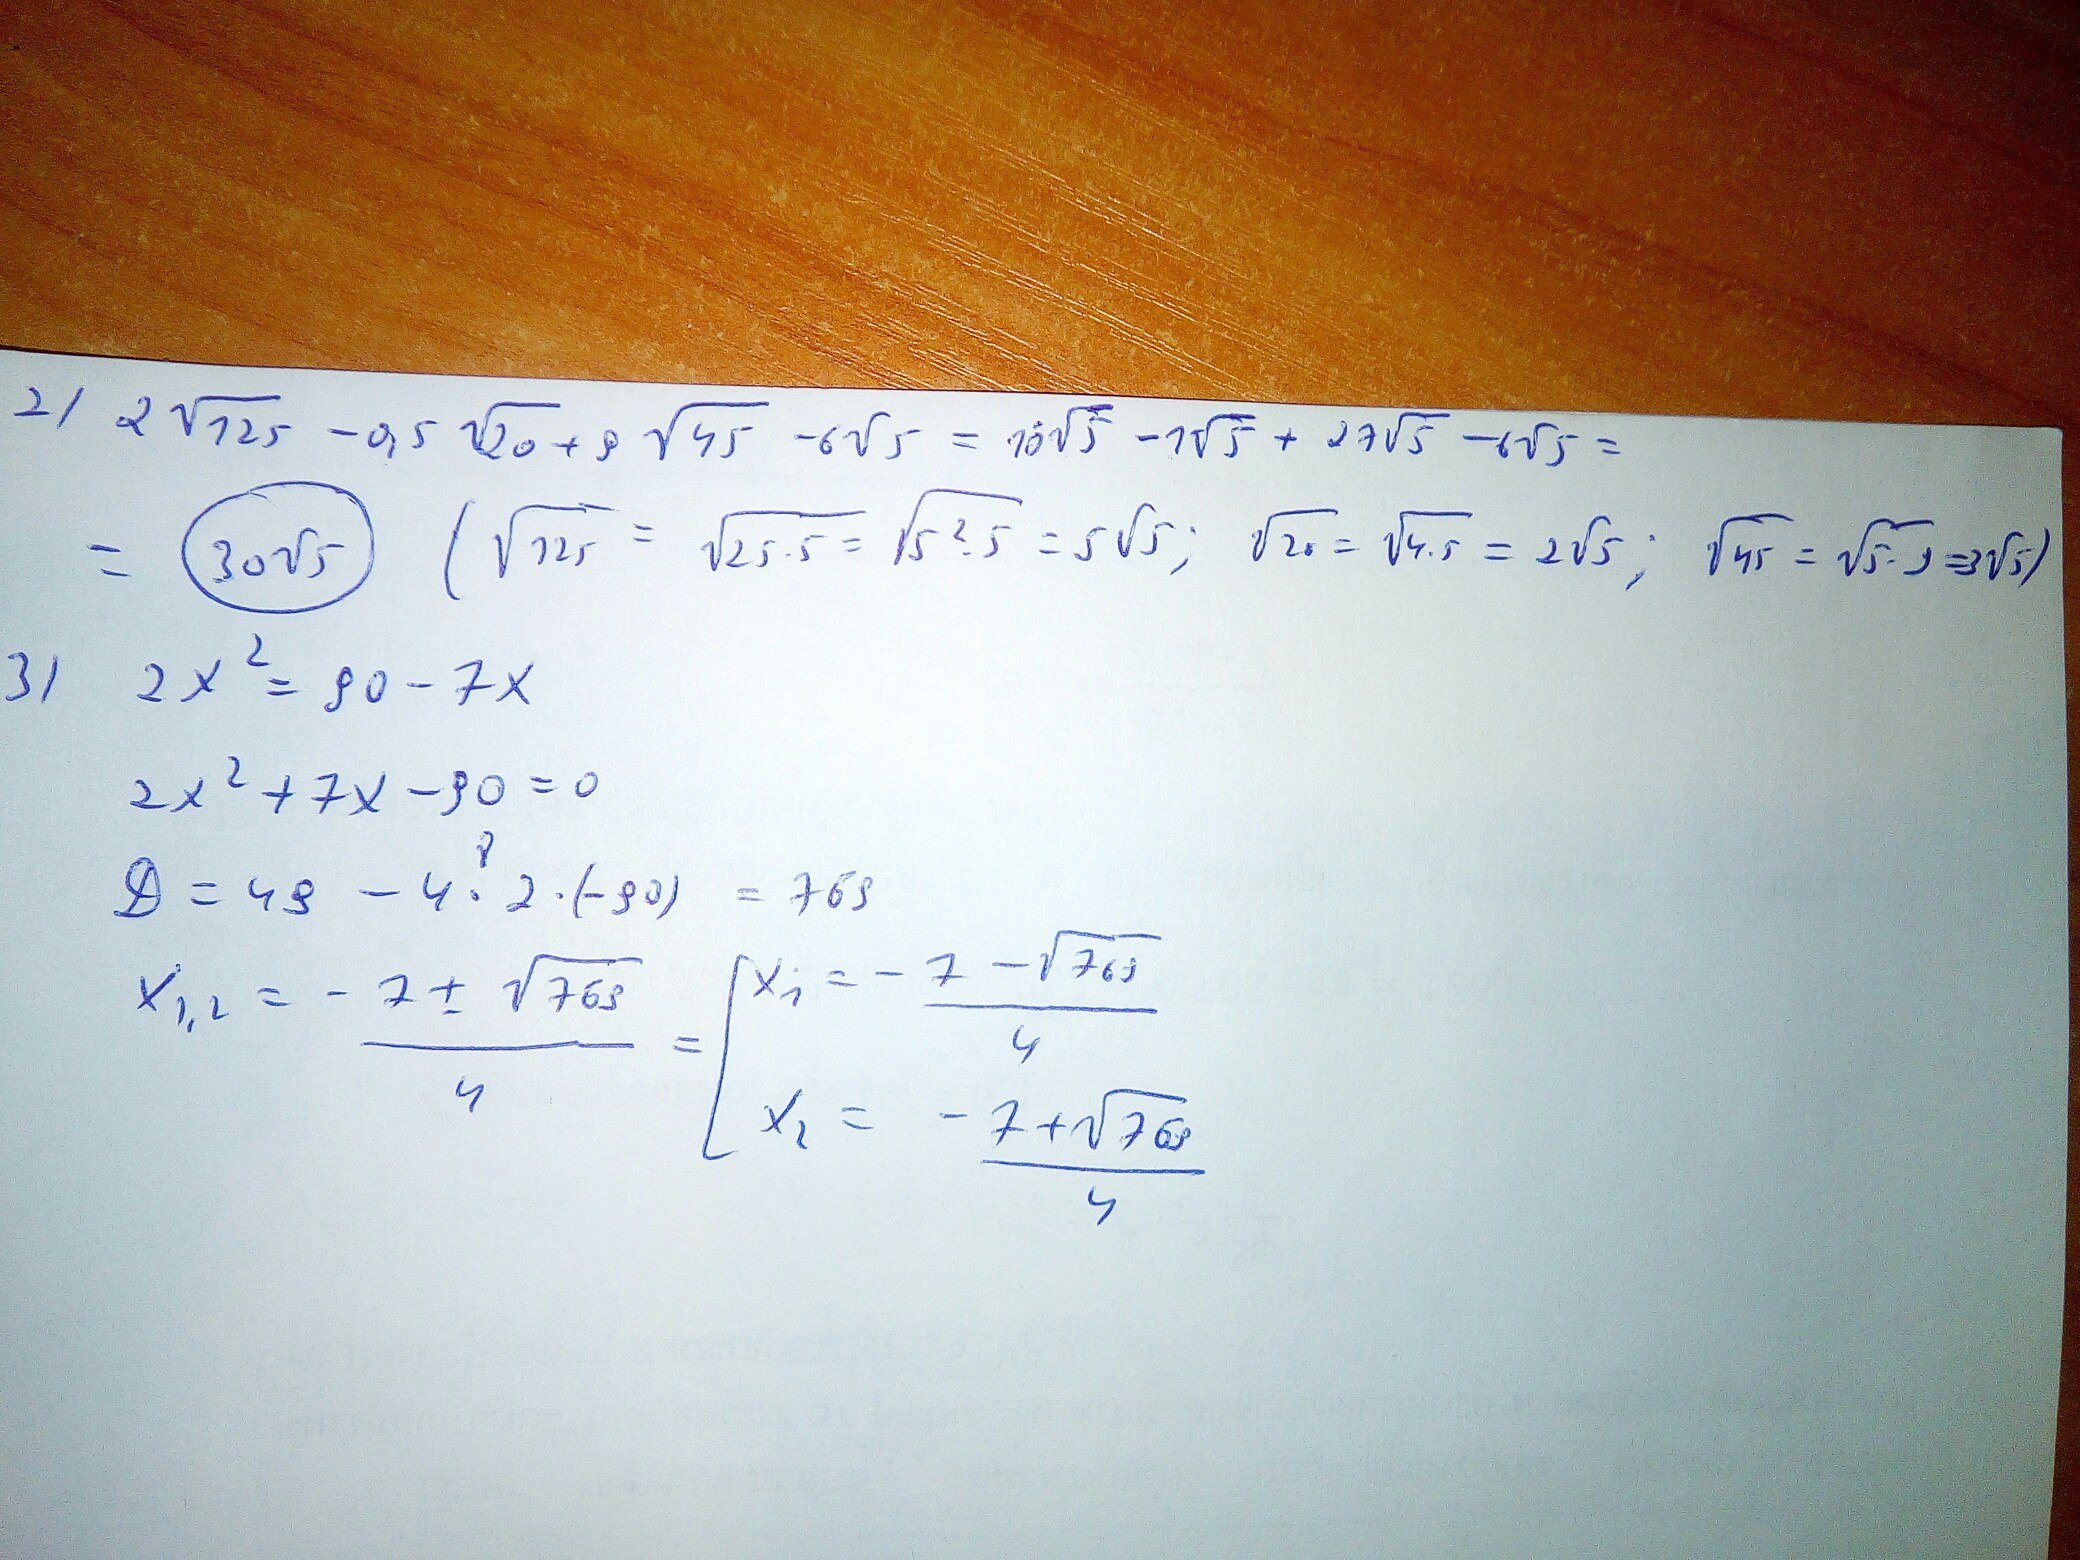 2) 2√125 - 0,5 √20 + 9 √45 - 6√5 = 10√5 - 1√5 + 27√5 - 6√5 =
= 30√5 (√125 = √25·5 = √5²·5 = 5√5; √20 = √4·5 = 2√5; √45 = √5·9 = 3√5)
3) 2x² = 90 - 7x
2x² + 7x - 90 = 0
D = 49 - 4·2·(-90) = 769
x₁,₂ = -7 ± √769 / 4 = [ x₁ = -7 - √769 / 4
x₂ = -7 + √769 / 4